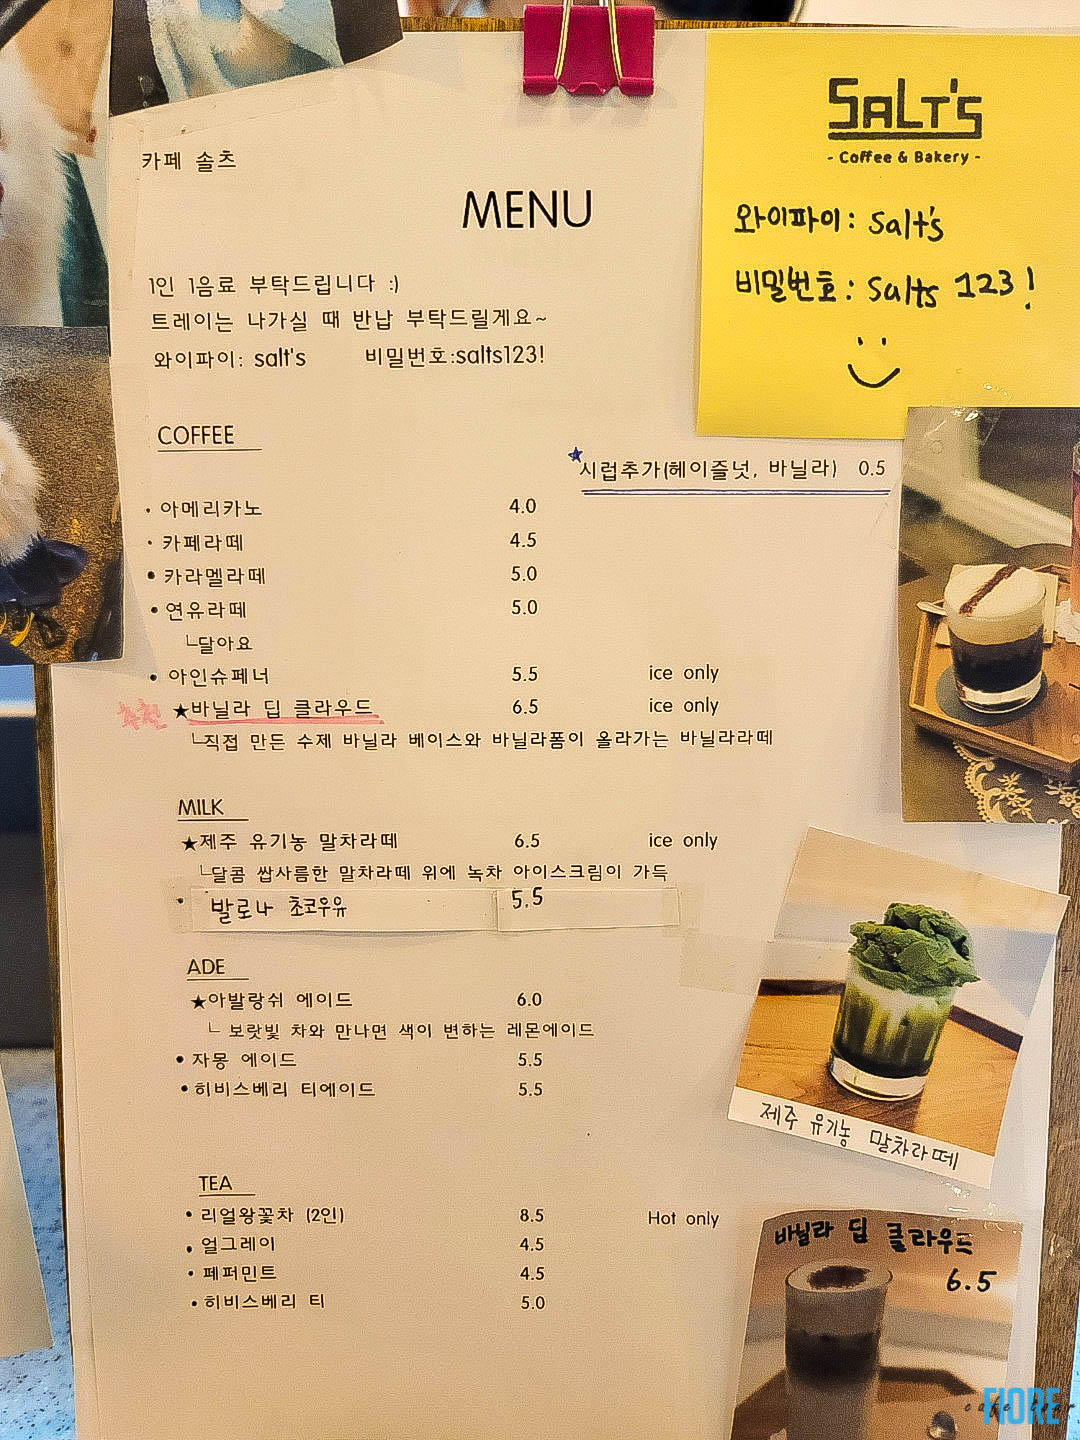 카페 솔츠
MENU
1인 1음료 부탁드립니다 :)
트레이는 나가실 때 반납 부탁드릴게요~
와이파이: salt's 비밀번호:salts123!
SALT'S
- Coffee & Bakery -
와이파이: salt's
비밀번호: salts 123!
COFFEE
★시럽추가(헤이즐넛, 바닐라) 0.5
• 아메리카노 4.0
• 카페라떼 4.5
• 카라멜라떼 5.0
• 연유라떼 5.0
└달아요
• 아인슈페너 5.5 ice only
추천 ★바닐라 딥 클라우드 6.5 ice only
└직접 만든 수제 바닐라 베이스와 바닐라폼이 올라가는 바닐라라떼
MILK
★제주 유기농 말차라떼 6.5 ice only
└달콤 쌉사름한 말차라떼 위에 녹차 아이스크림이 가득
• 발로나 초코우유 5.5
ADE
★아발랑쉬 에이드 6.0
└ 보랏빛 차와 만나면 색이 변하는 레몬에이드
• 자몽 에이드 5.5
• 히비스베리 티에이드 5.5
TEA
• 리얼왕꽃차 (2인) 8.5 Hot only
• 얼그레이 4.5
• 페퍼민트 4.5
• 히비스베리 티 5.0
제주 유기농 말차라떼
바닐라 딥 클라우드
6.5
FIORE